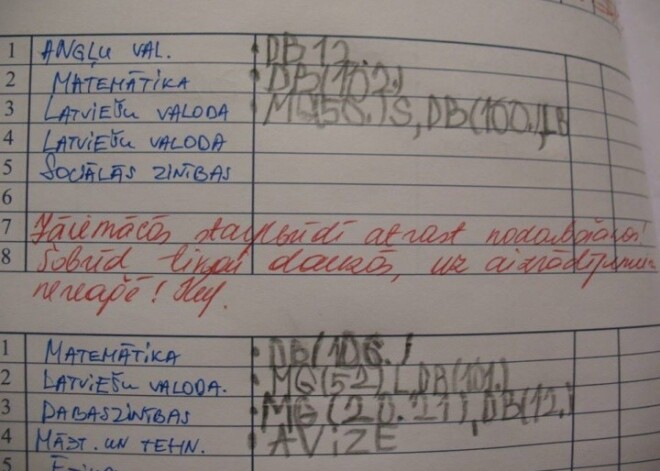 1 ANGĻU VAL. DB 12.
2 MATEMĀTIKA DB(102.)
3 LATVIEŠU VALODA MG(56.)S, DB(100.)LB
4 LATVIEŠU VALODA
5 SOCIĀLĀS ZINĪBAS
6
7 Jāiemācās starpbrīdī atrast nodarbošanos!
8 Šobrīd tikai daudzās, uz aizrādījumu
nereaģē!
1 MATEMĀTIKA DB(106.)
2 LATVIEŠU VALODA. MG(52) L, DB(101.)
3 DABASZINĪBAS MG(20.21), DB(12.)
4 MĀJT. UN TEHN. AVĪZE
5